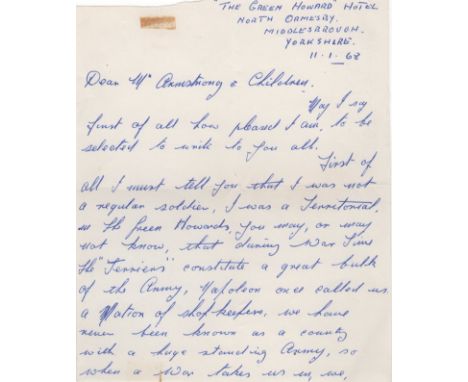 "THE GREEN HOWARD" HOTEL
NORTH ORMESBY.
MIDDLESBROUGH.
YORKSHIRE.
11.1.68
Dear Mr Armstrong & Children.
May I say
first of all how pleased I am, to be
selected to write to you all.
First of
all I must tell you that I was not
a regular soldier, I was a Territorial.
in the Green Howards, you may, or may
not know, that during War Time
the "Terriers" constitute a great bulk
of the Army, Napoleon once called us
a Nation of shopkeepers, we have
never been known as a country
with a huge standing Army, so
when a War takes us in, we,